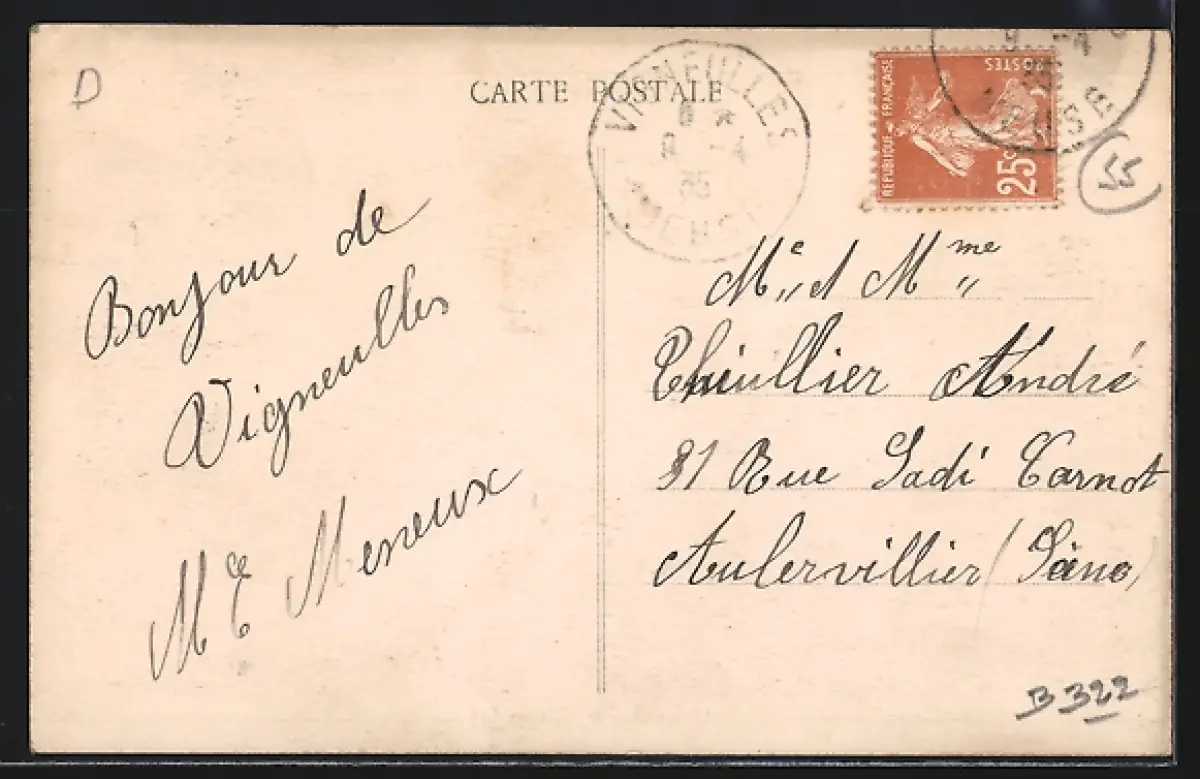 D
CARTE POSTALE
VIGNEULLES
8 -4
35
MEUSE
REPUBLIQUE FRANÇAISE
POSTES
25c
MEUSE
55
Bonjour de
Vigneulles
M E Meneux
Mr et Mme
Thiullier André
31 Rue Sadi Carnot
Aulervillier (Seine)
B 322